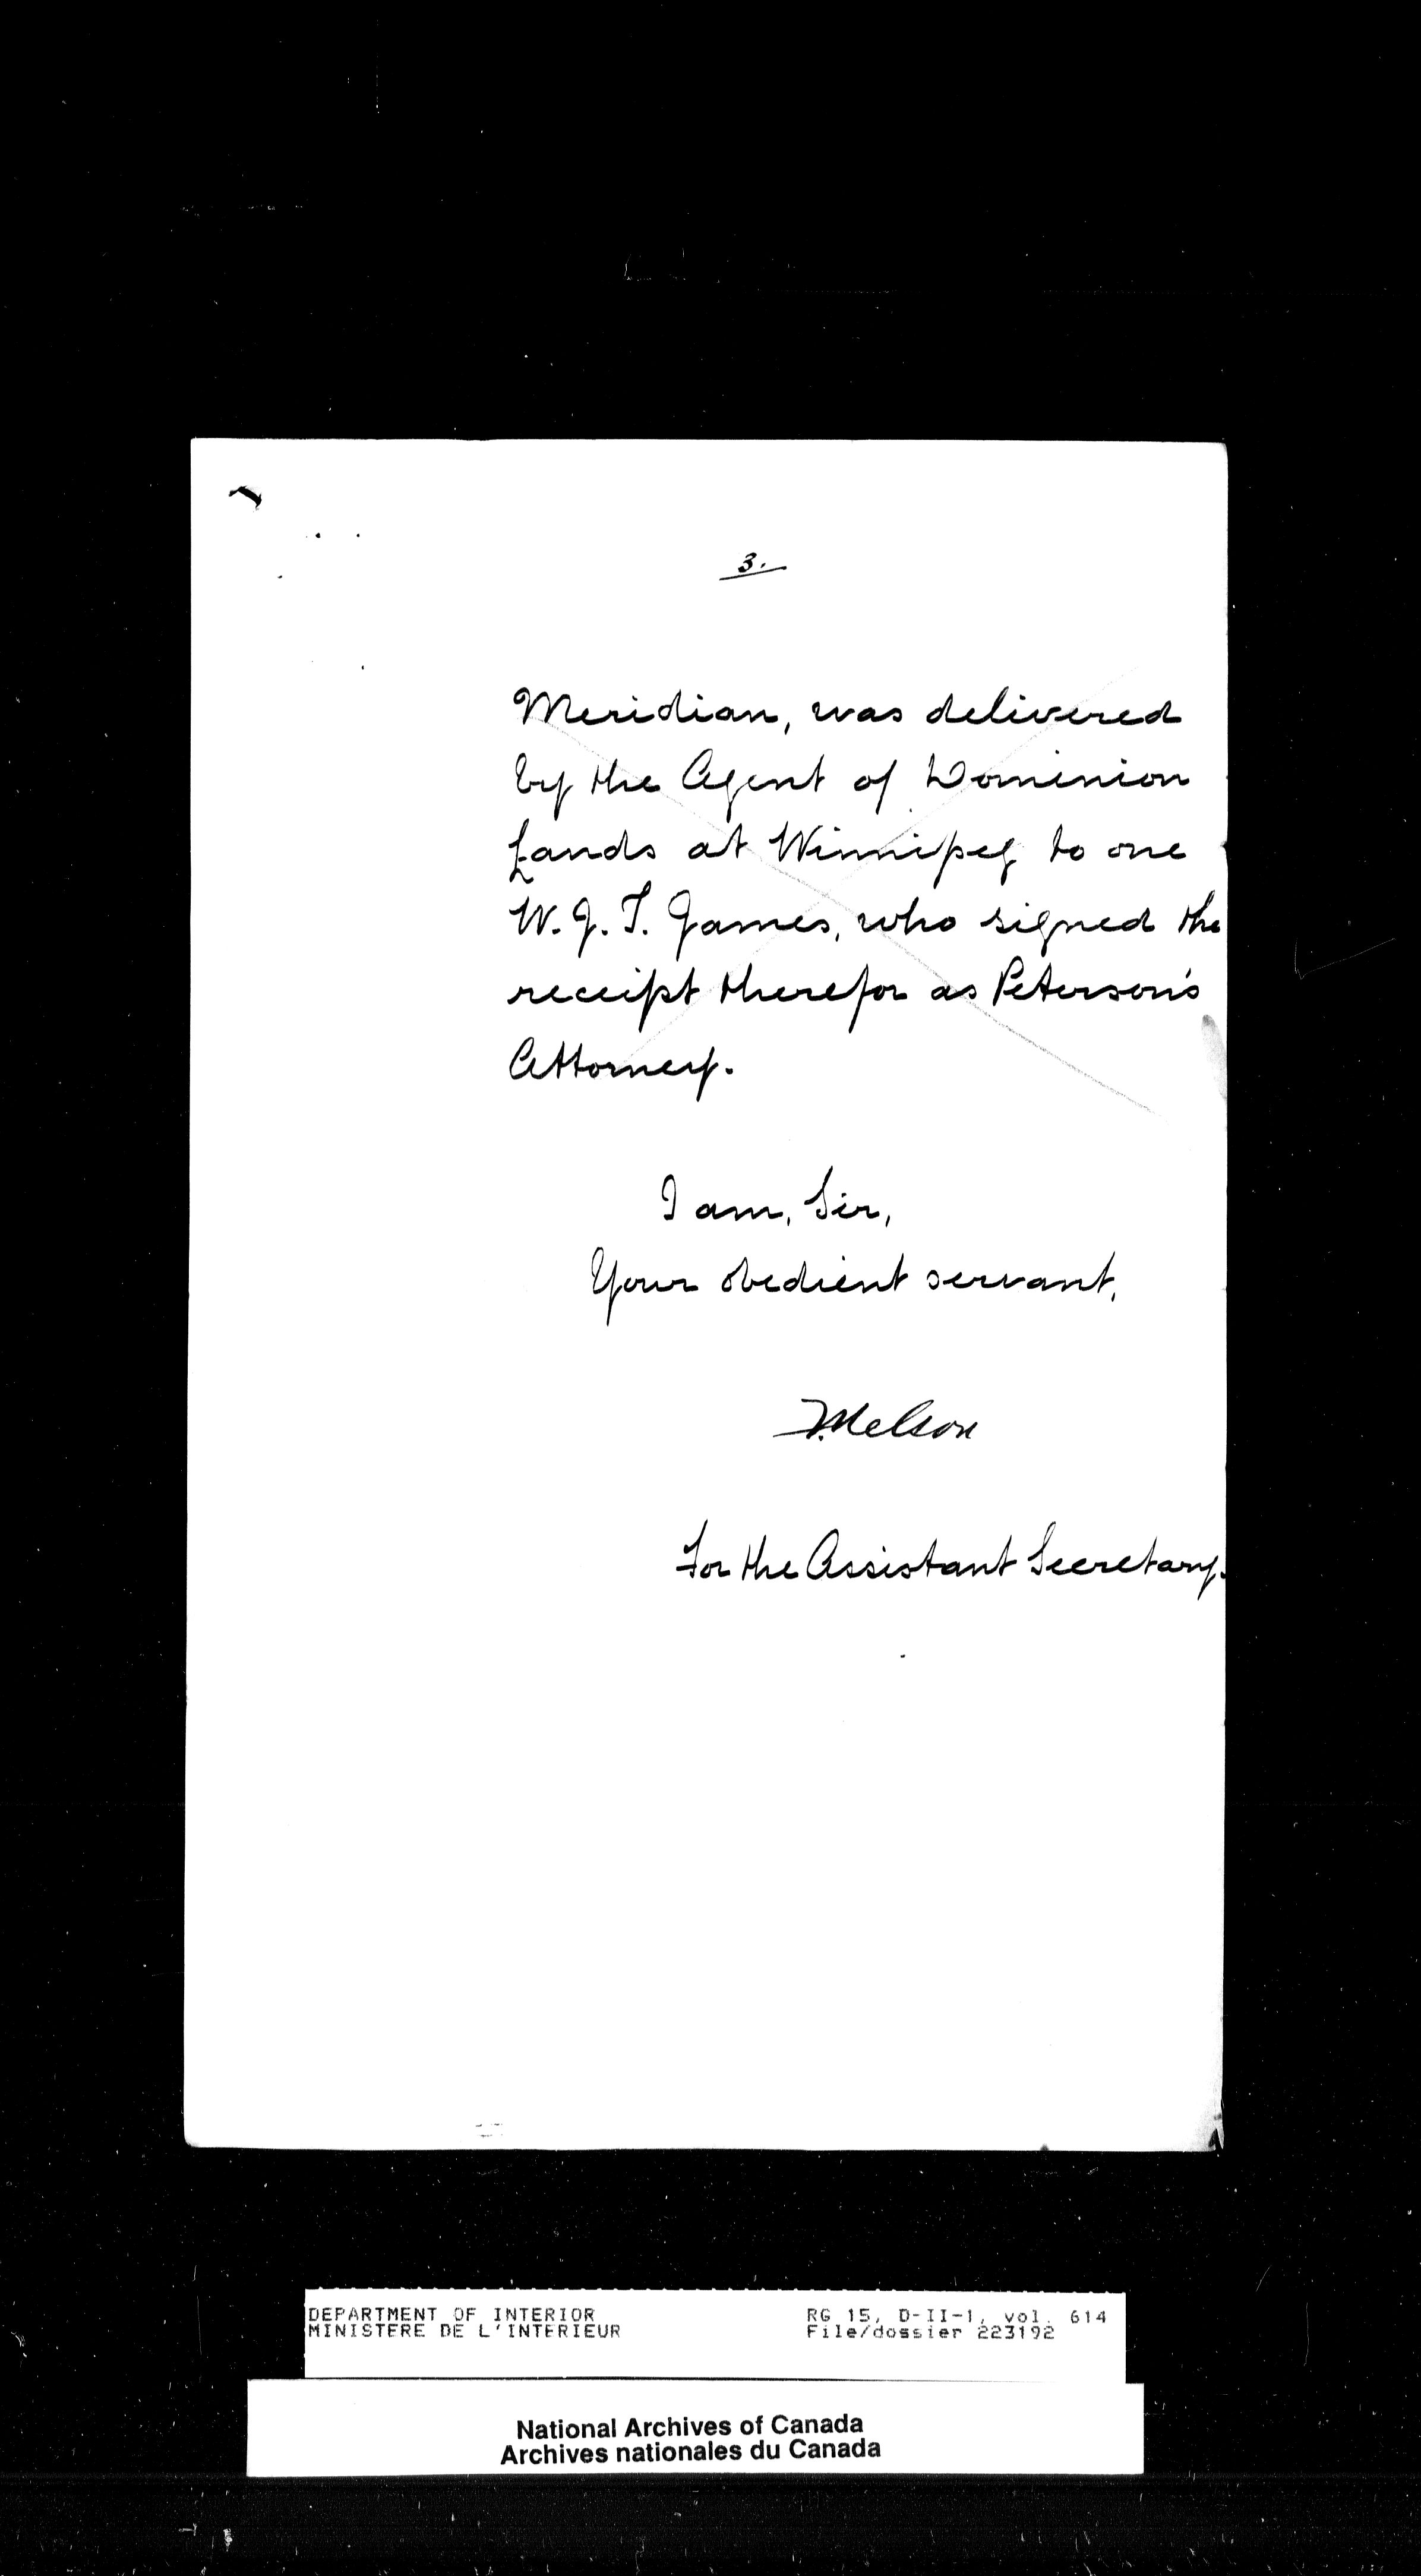 3.
Meridian, was delivered
by the Agent of Dominion
Lands at Winnipeg to one
W. J. T. James, who signed the
receipt therefor as Peterson's
Attorney.
I am, Sir,
Your obedient servant,
For the Assistant Secretary.
DEPARTMENT OF INTERIOR
MINISTERE DE L'INTERIEUR
RG 15, D-II-1, vol. 614
File/dossier 223192
National Archives of Canada
Archives nationales du Canada